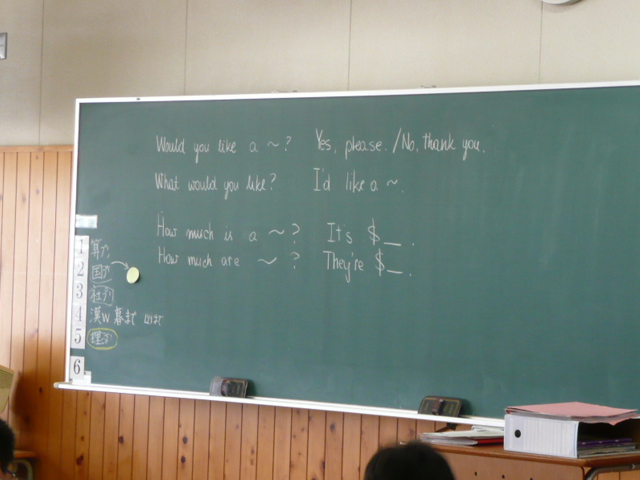 Would you like a ~? Yes, please. /No, thank you.
What would you like? I'd like a ~.
How much is a ~? It's $_.
How much are ~? They're $_.
1
2
3
4 漢W
5
6